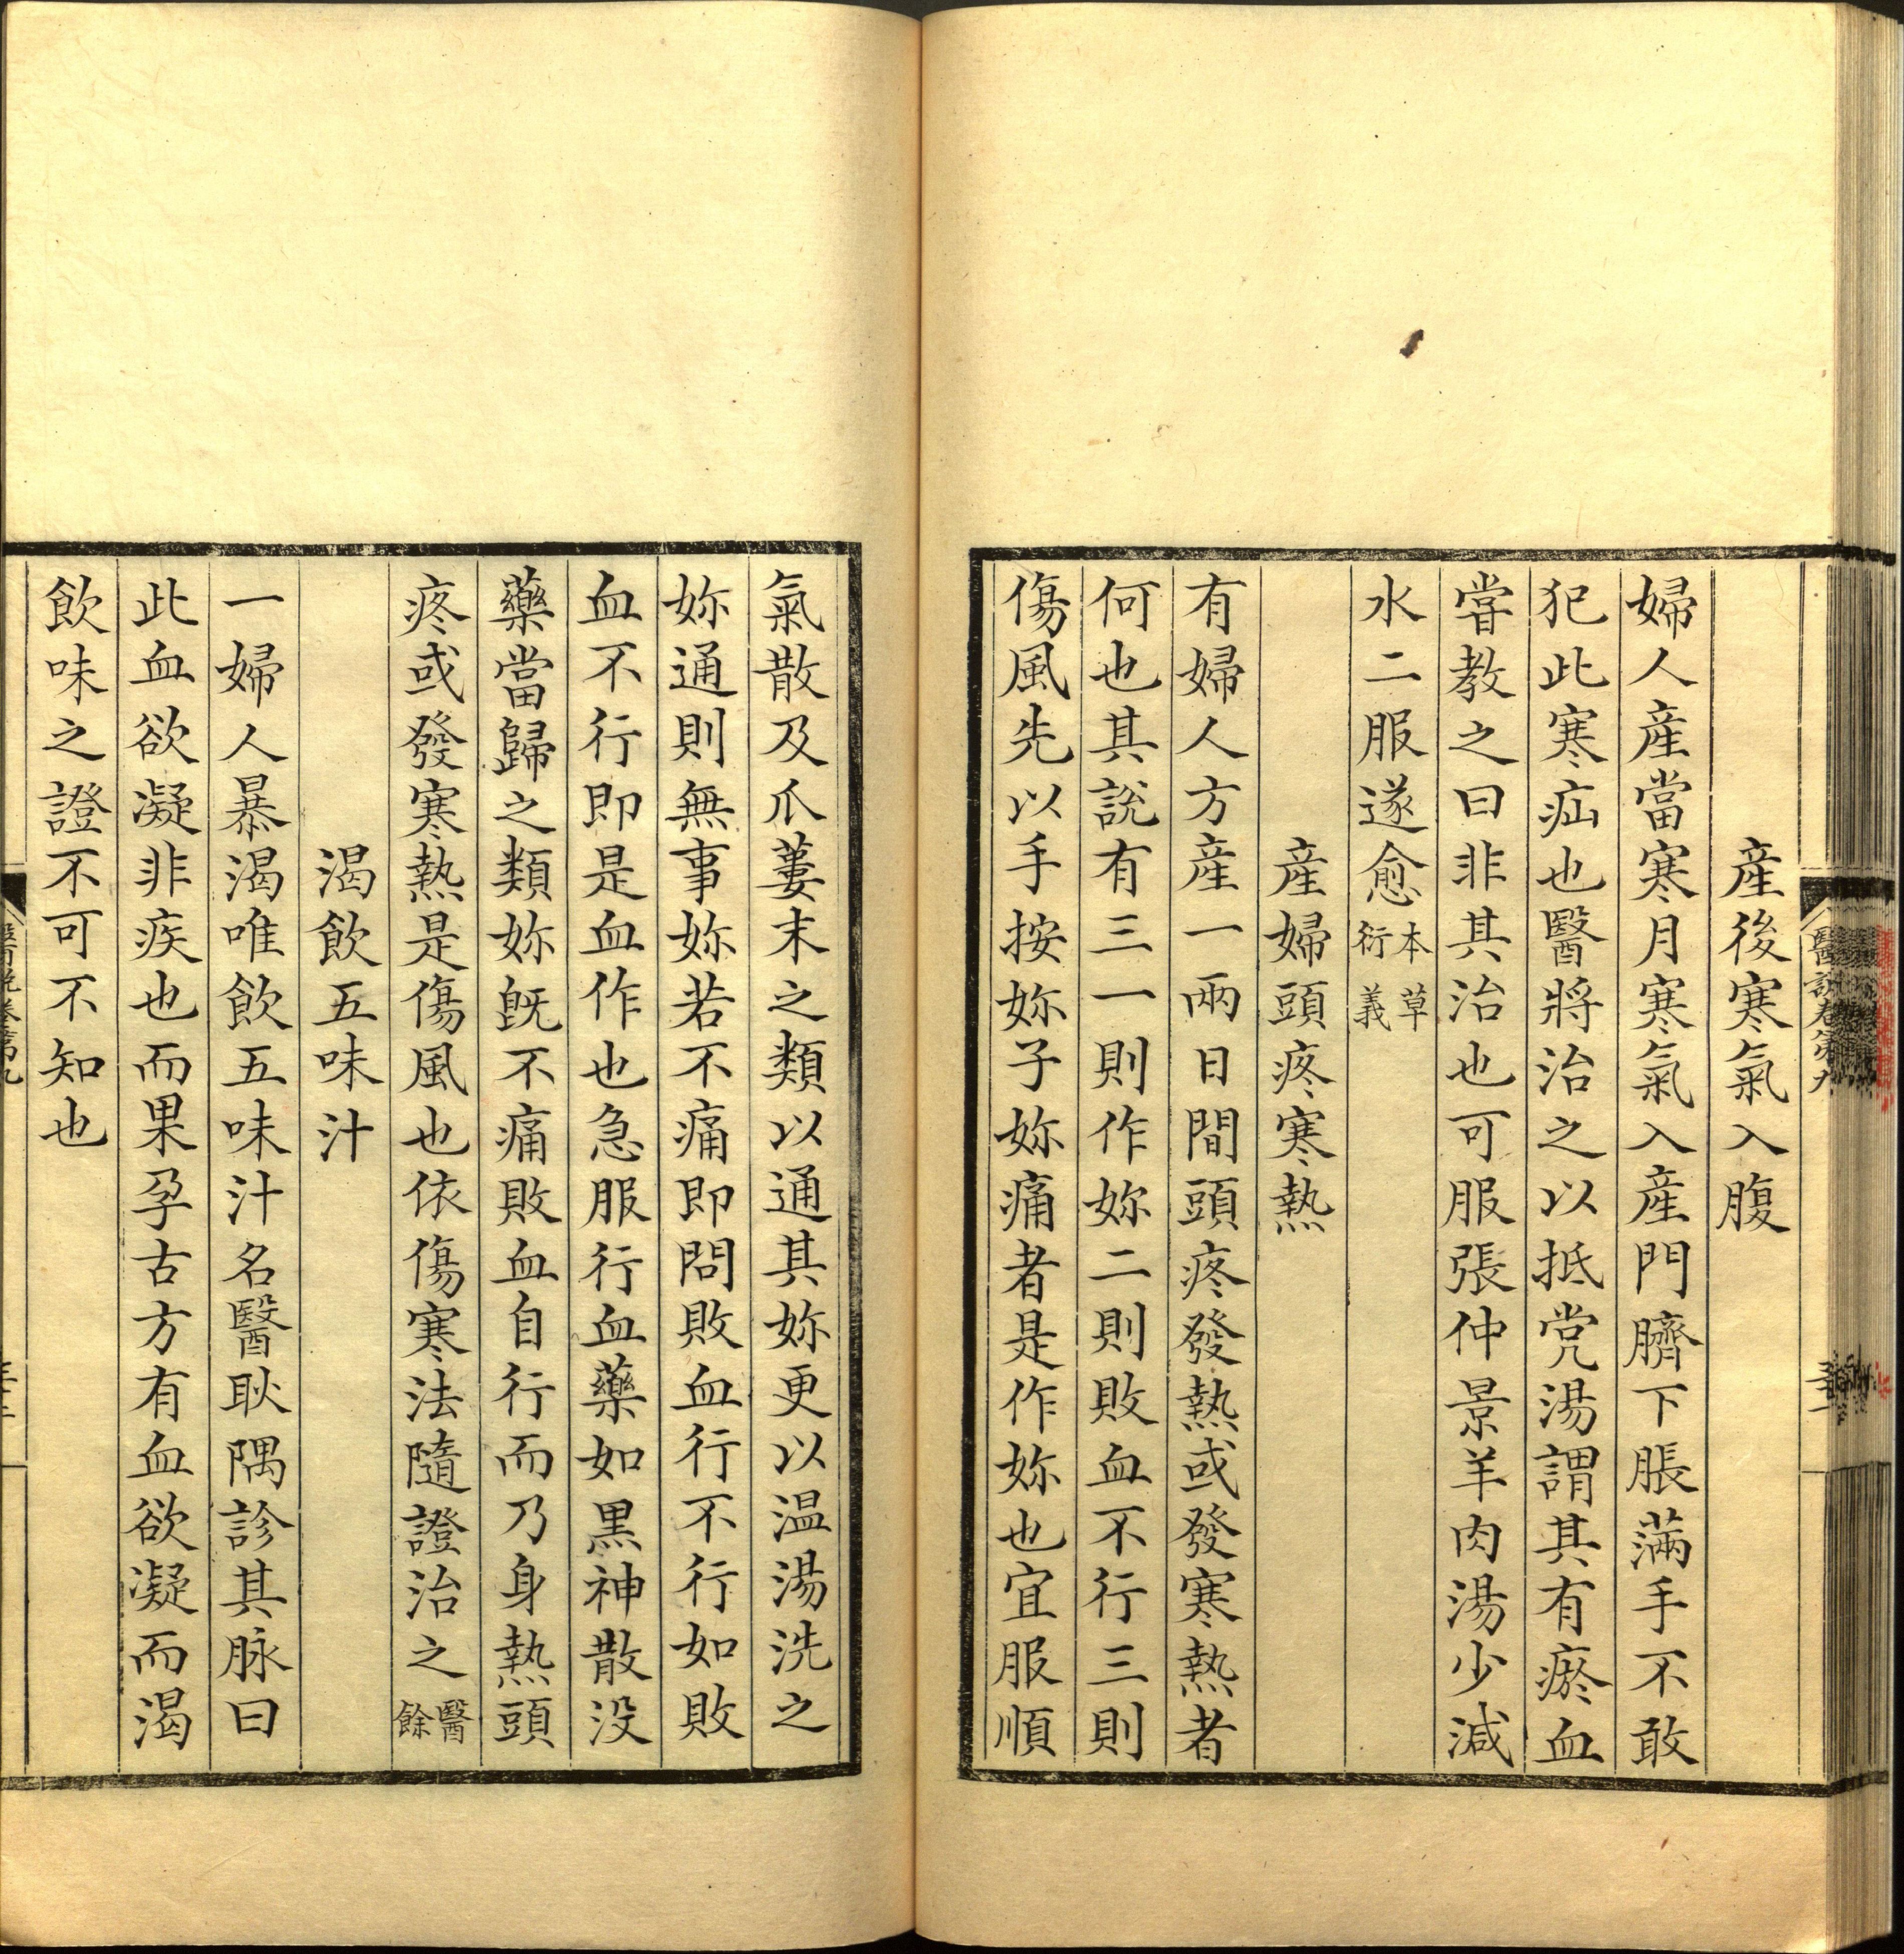 產後寒氣入腹
婦人產當寒月寒氣入產門臍下脹滿手不敢
犯此寒疝也醫將治之以抵党湯謂其有瘀血
甞教之曰非其治也可服張仲景羊肉湯少減
水二服遂愈本草衍義
產婦頭疼寒熱
有婦人方產一兩日間頭疼發熱或發寒熱者
何也其說有三一則作妳二則敗血不行三則
傷風先以手按妳子妳痛者是作妳也宜服順
氣散及爪蔞末之類以通其妳更以温湯洗之
妳通則無事妳若不痛即問敗血行不行如敗
血不行即是血作也急服行血藥如黒神散没
藥當歸之類妳旣不痛敗血自行而乃身熱頭
疼或發寒熱是傷風也依傷寒法隨證治之醫餘
渴飲五味汁
一婦人暴渴唯飲五味汁名醫耿隅診其脉曰
此血欲凝非疾也而果孕古方有血欲凝而渴
飲味之證不可不知也
醫說卷第九